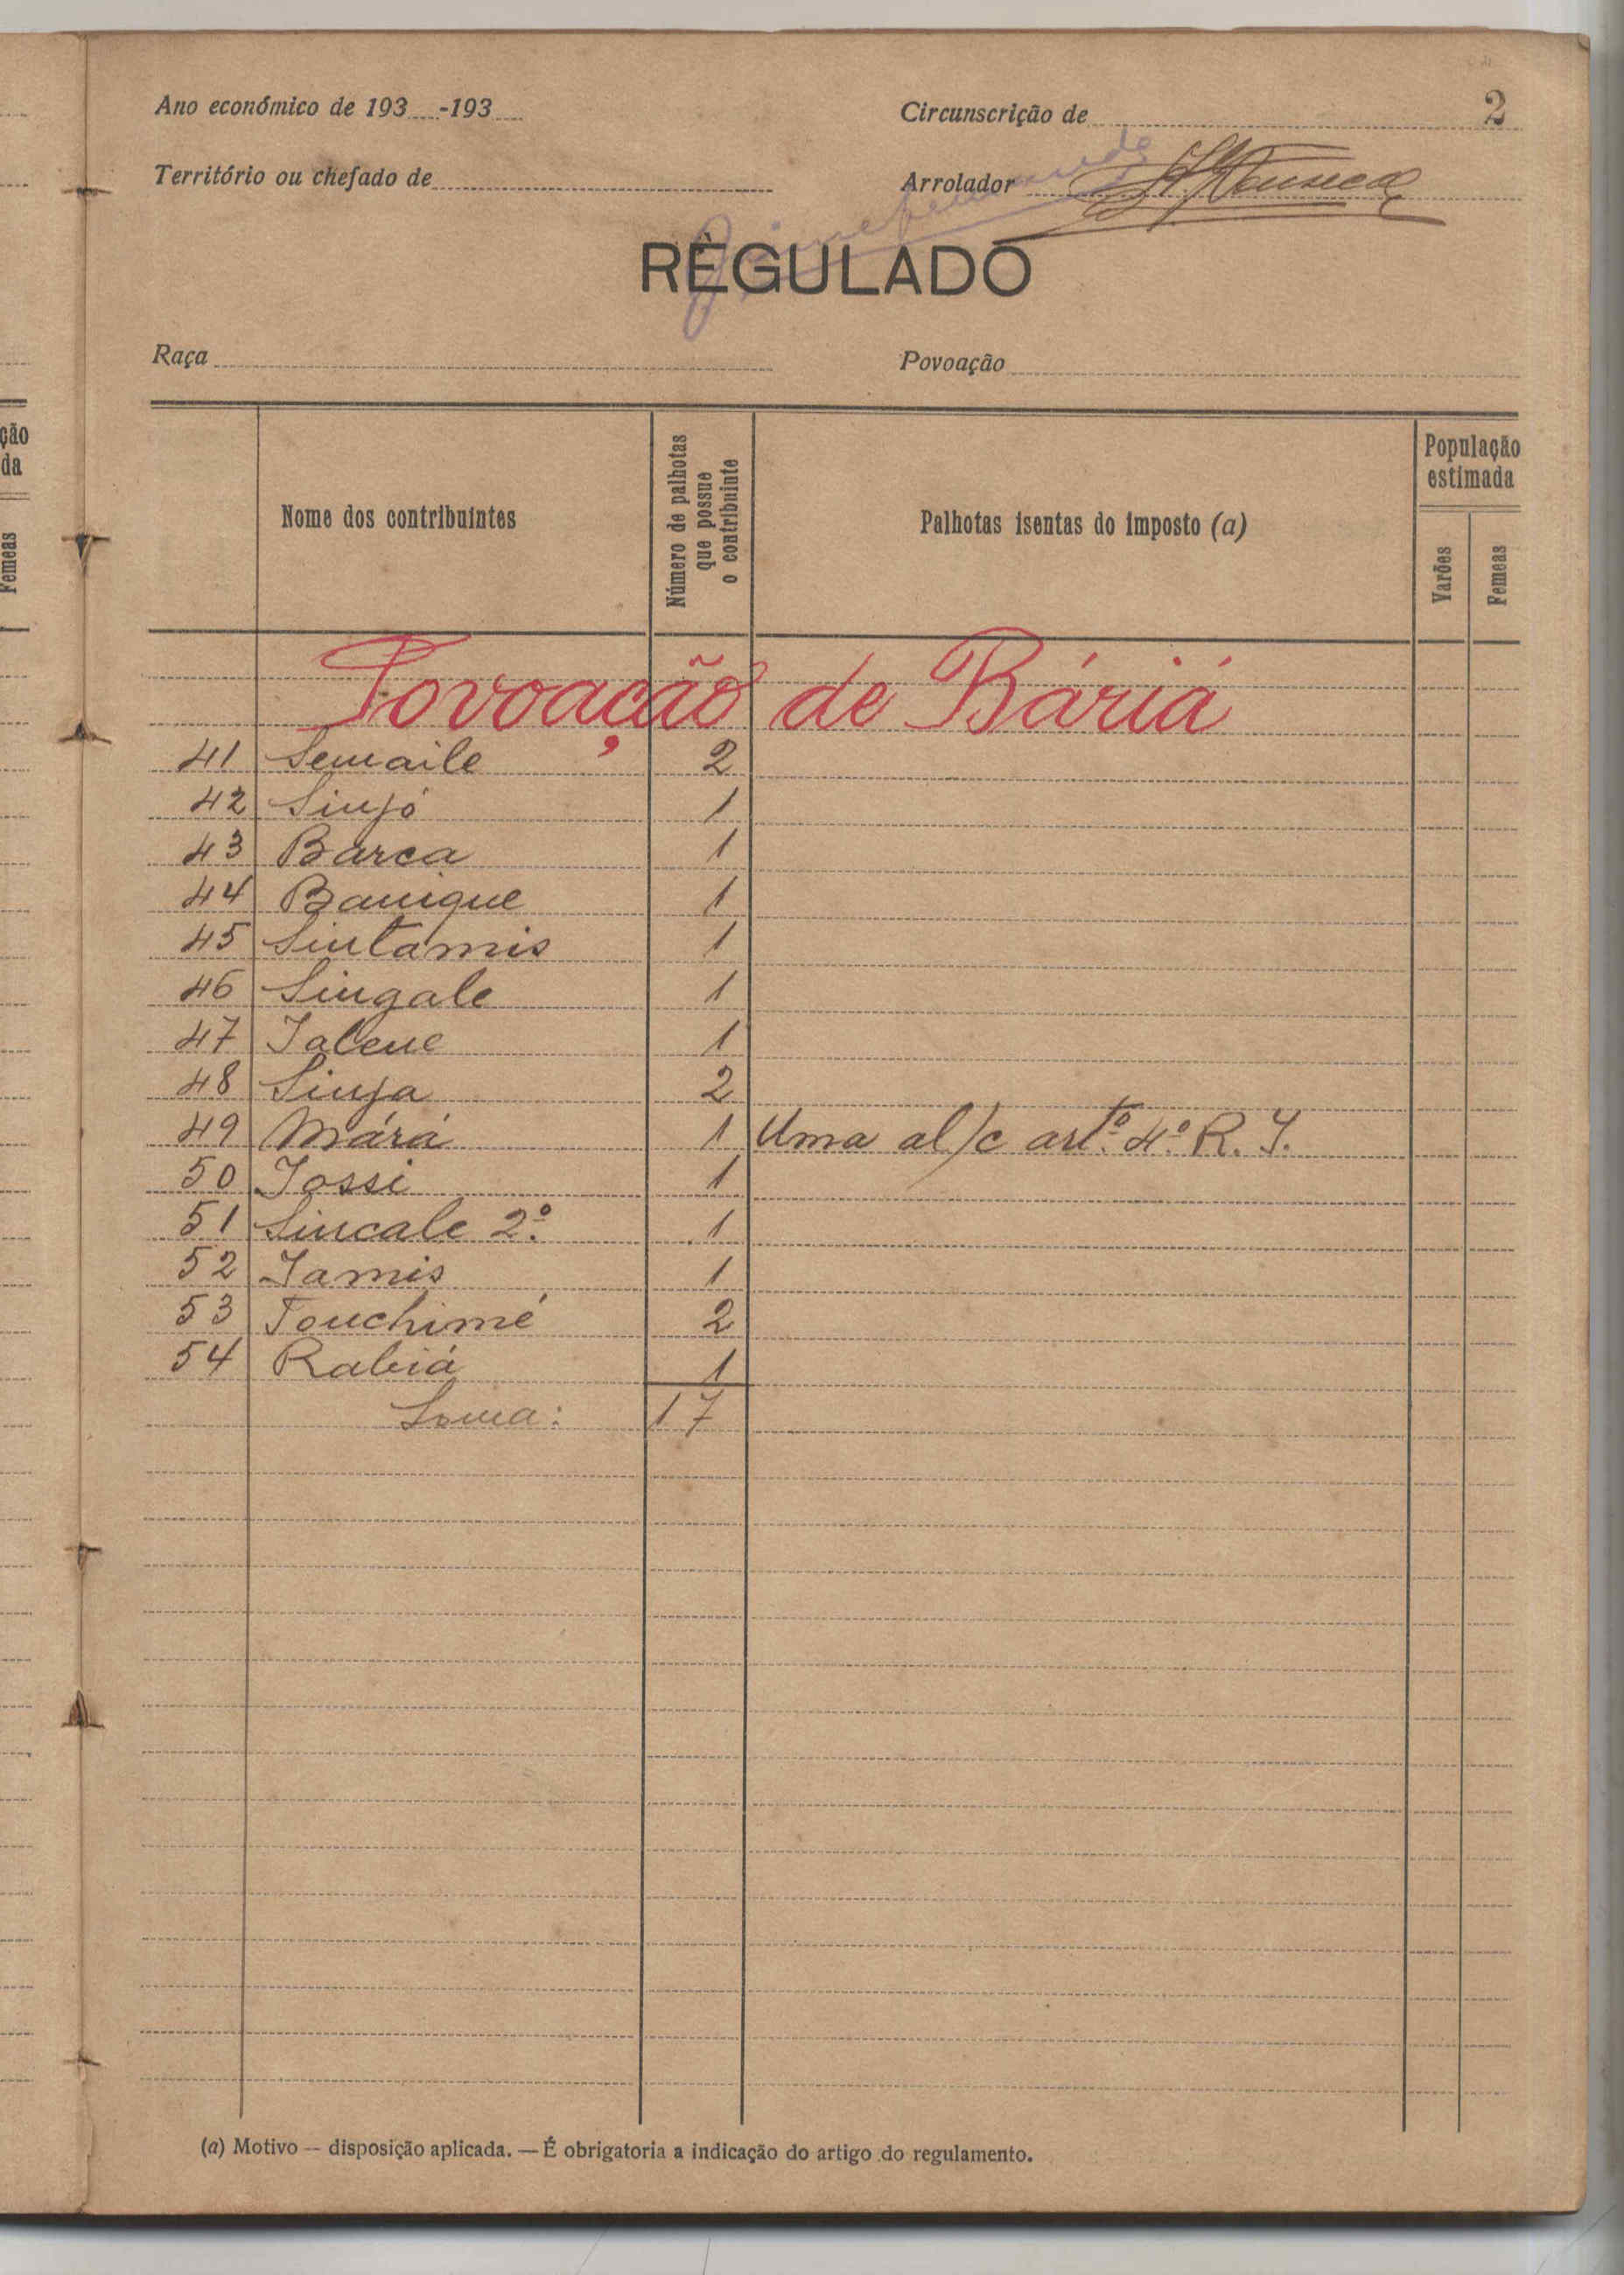 2
Ano económico de 193 -193
Circunscrição de
Território ou chefado de
Arrolador Fonseca
RÈGULADO
Raça
Povoação
ção
da
Femeas
Nome dos contribuintes
Número de palhotas
que possue
o contribuinte
Palhotas isentas do imposto (a)
População
estimada
Varões
Femeas
Povoação de Báriá
41 Semaile 2
42 Sinjó 1
43 Barca 1
44 Banique 1
45 Sintamis 1
46 Singale 1
47 Jalene 1
48 Sinja 2
49 Márá 1 Uma al/c artº. 4º. R. I.
50 Jossi 1
51 Sincale 2º. 1
52 Jamis 1
53 Touchimé 2
54 Rabiá 1
Soma: 17
(a) Motivo — disposição aplicada. — É obrigatoria a indicação do artigo do regulamento.